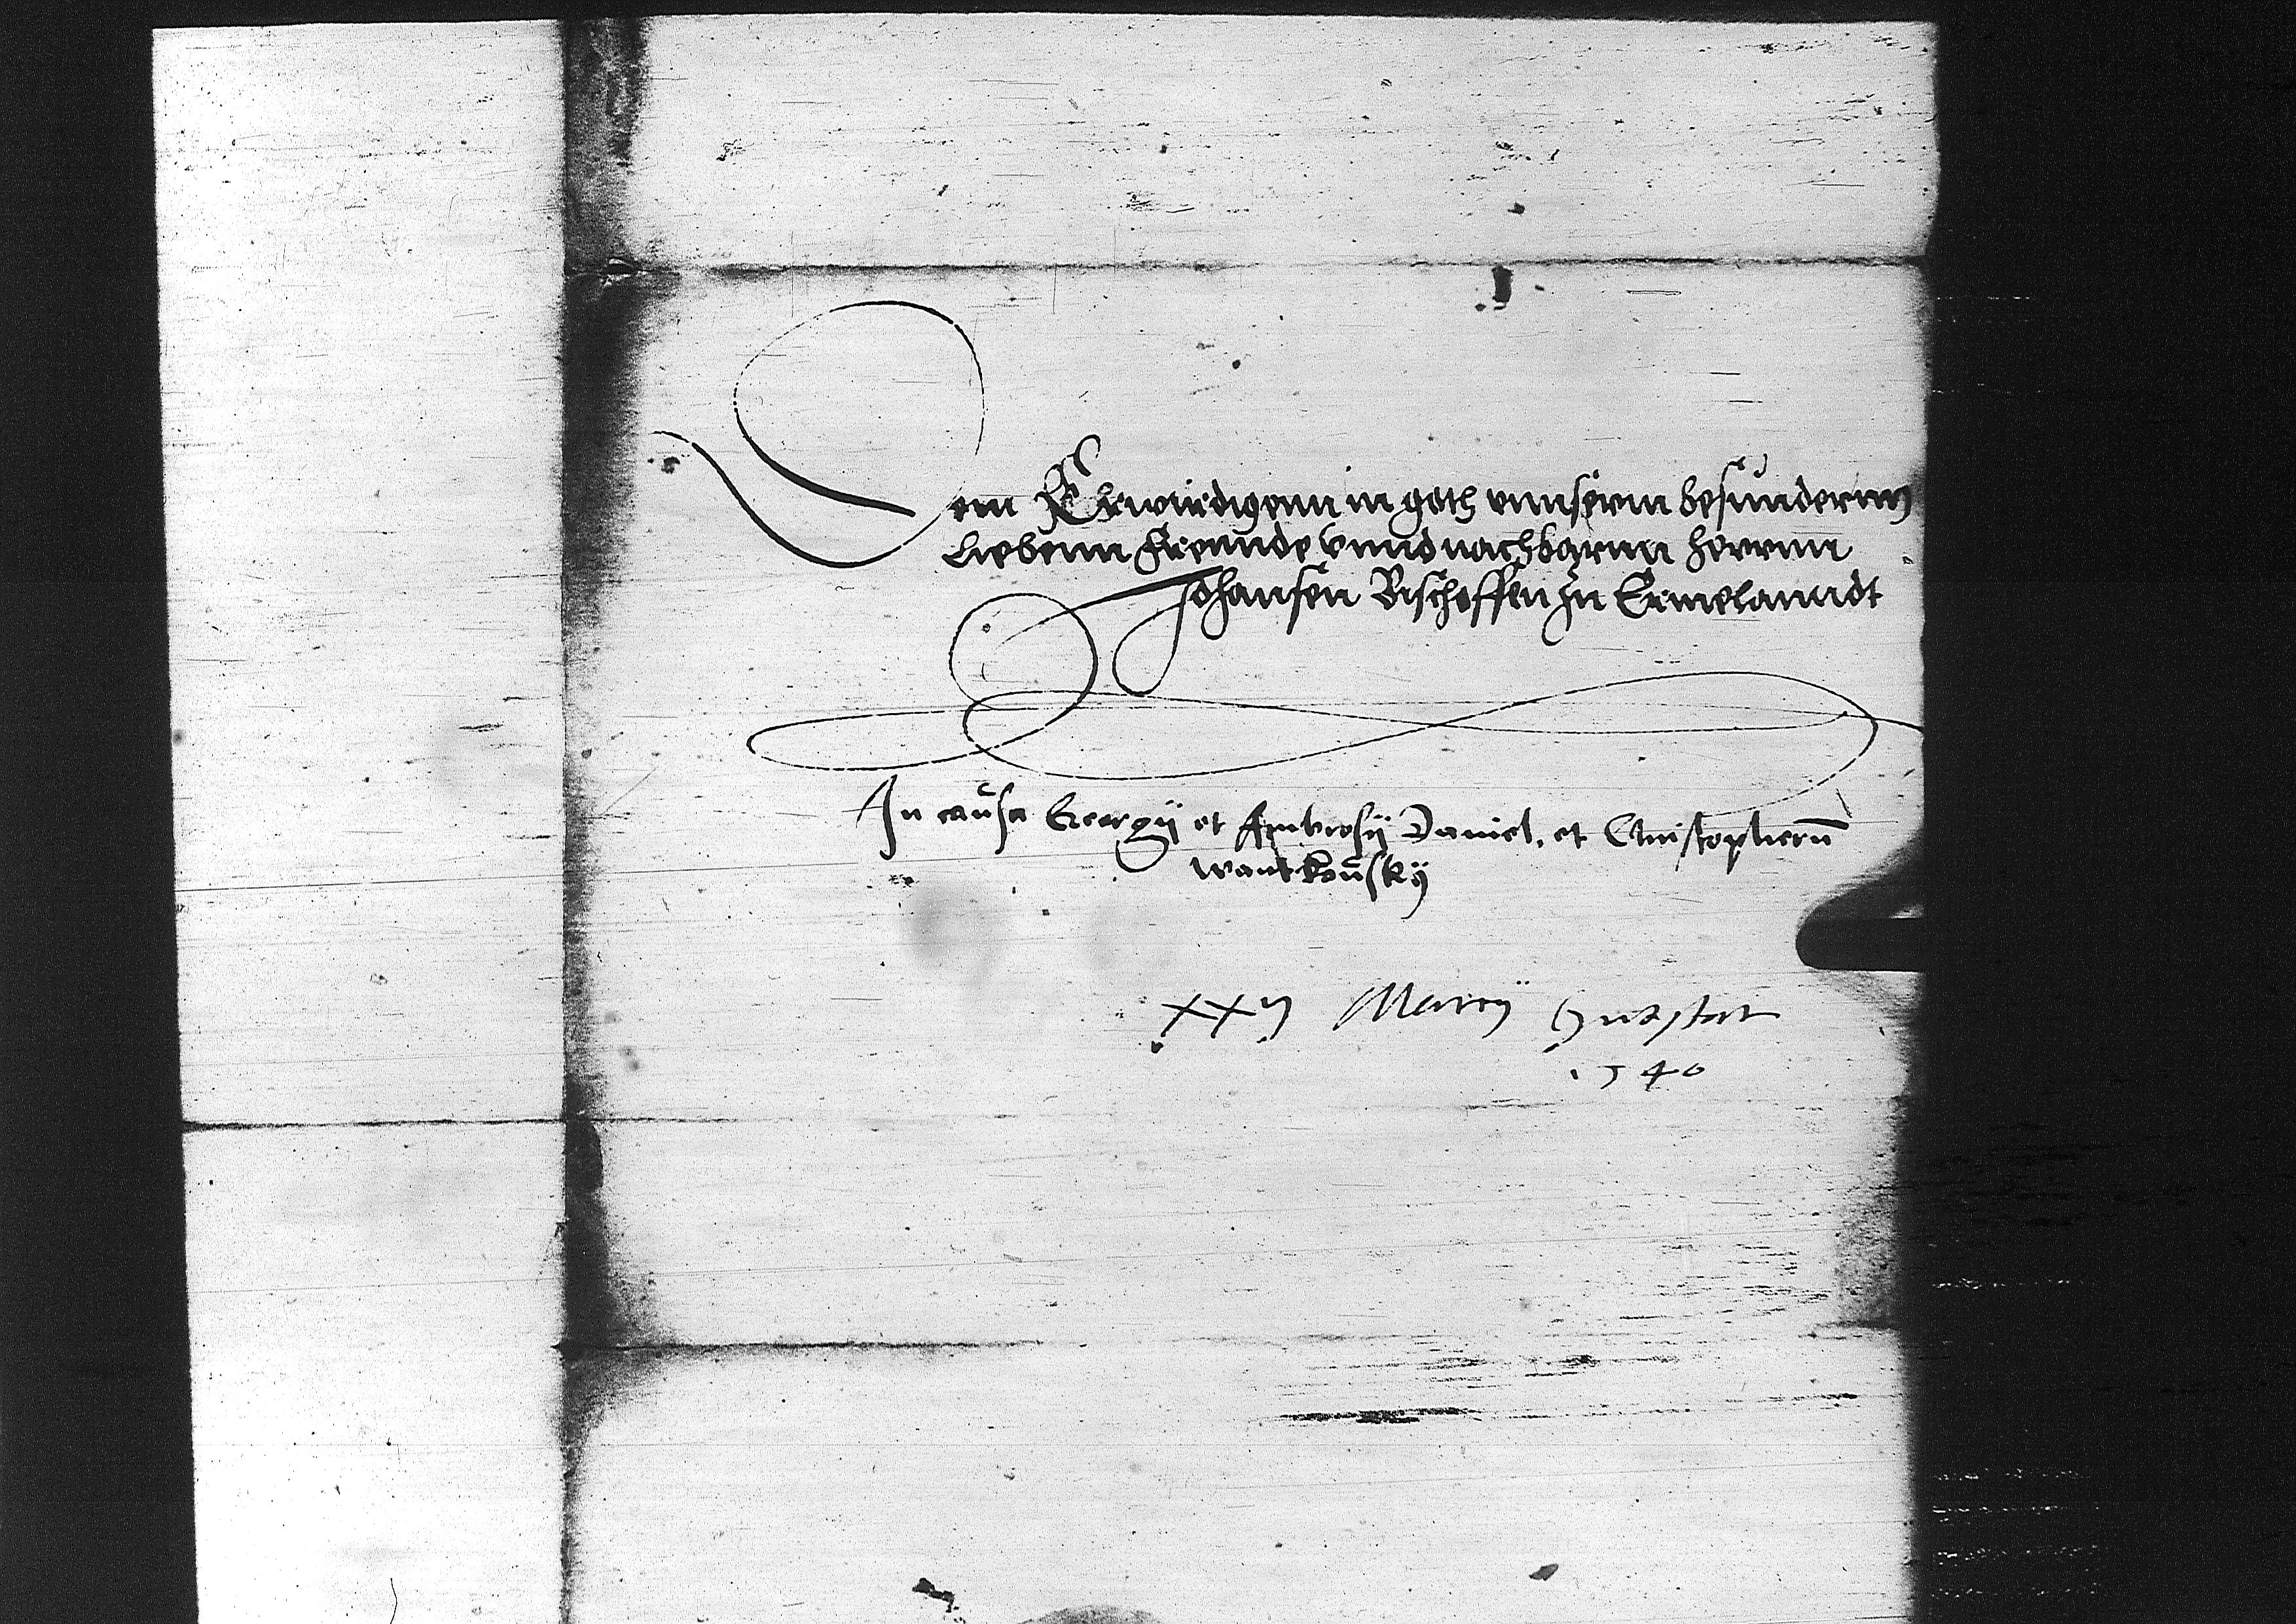 Dem Erwirdigenn in goth vnnserm besundernn
Liebenn Freunde vnnd nachbarnn herrnn
Johansen Bischoffen zu Ermelanndt
In causa Georgÿ et Ambrosÿ Daniel, et Christopherū
XXII Marcÿ
1540